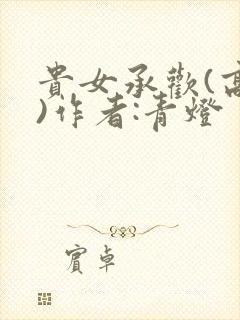 貴女承歡(高
)作者:青燈
賓卓